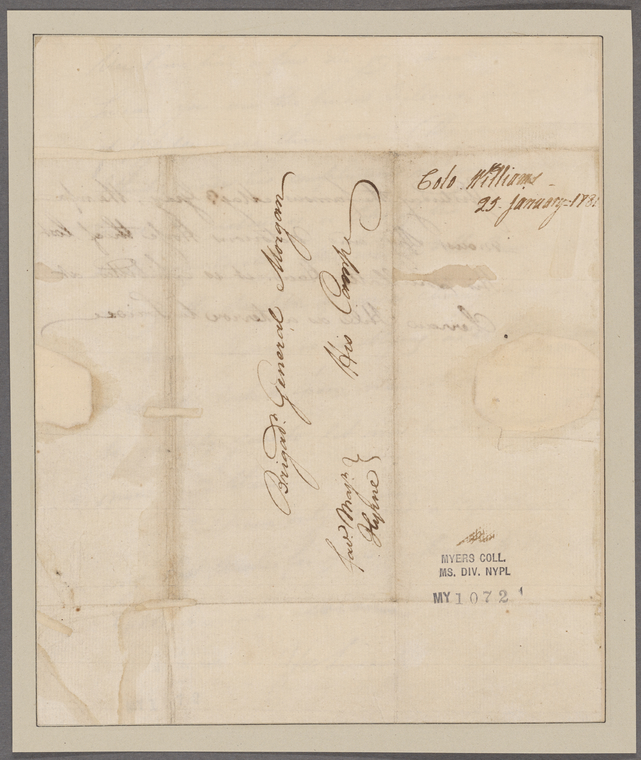 Colo Williams
25 January 1781
Brigadr. General Morgan
His Campe
favd. Majr.
Hyrne
MYERS COLL.
MS. DIV. NYPL
MY 1072